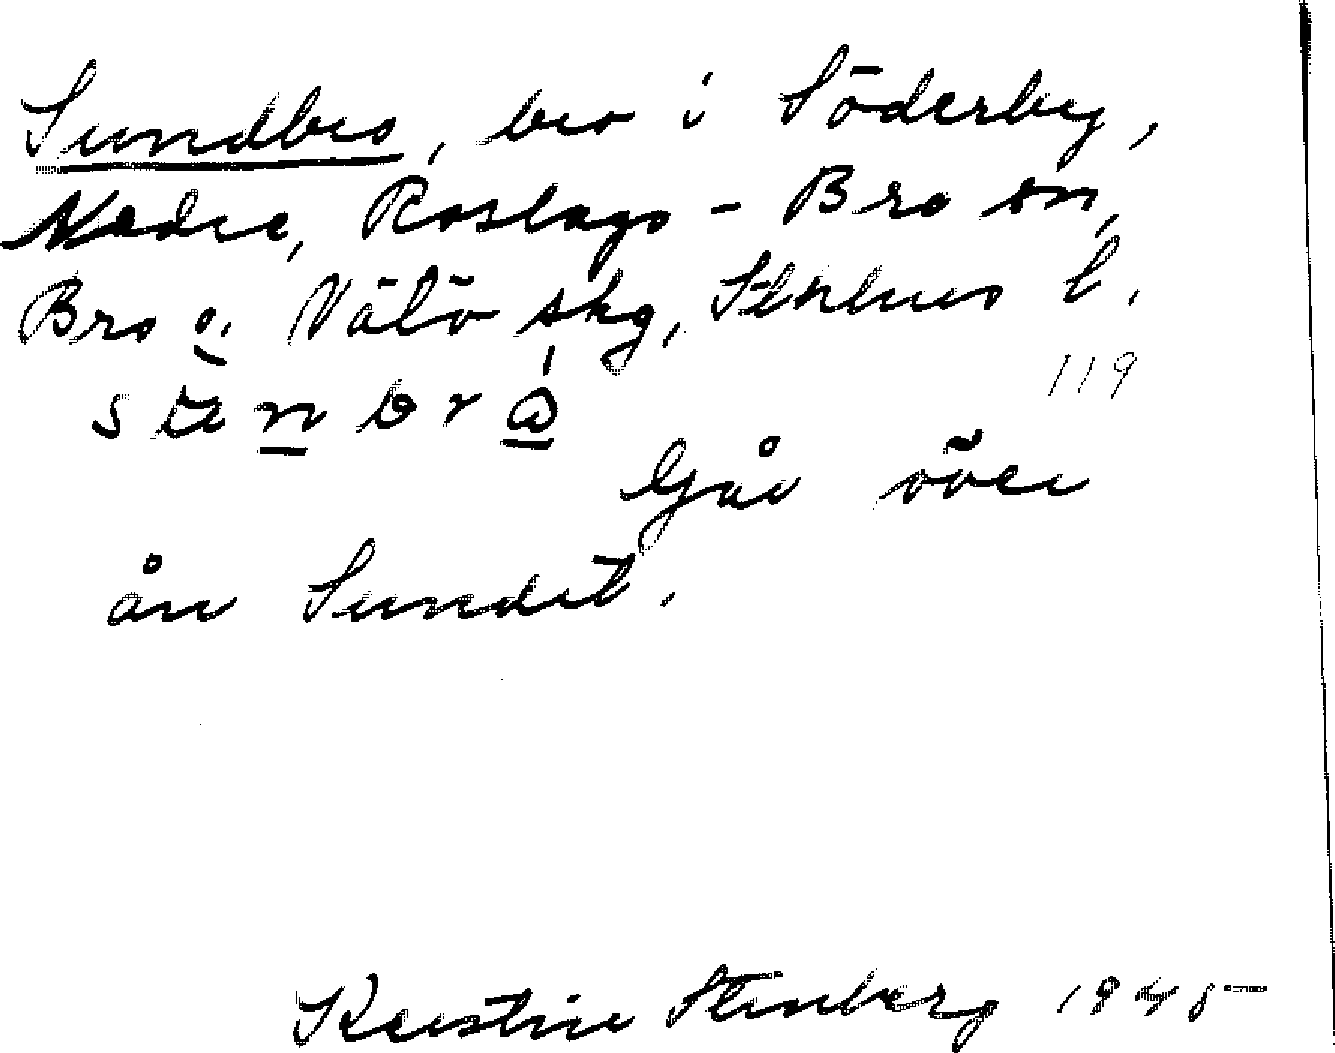 Sundbro, bro i Söderby,
Nedre, Roslags-Bro sn,
Bro o. Vätö skg, Sthlms l.
119
Går över
ån Sundet.
Kerstin Stenberg 1945